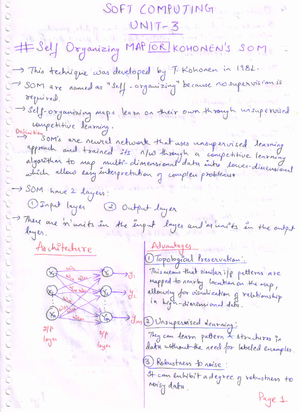 SOFT COMPUTING
UNIT-3
# Self Organizing MAP [OR] KOHONEN'S SOM
→ This technique was developed by T. Kohonen in 1982.
→ SOM are named as "Self-organizing" because no supervision is
required.
→ Self-organizing maps learn on their own through unsupervised
competitive learning.
Definition
→ SOM's are neural network that uses unsupervised learning
approach and trained its n/w through a competitive learning
algorithm to map multi-dimensional data into lower-dimensional
which allow easy interpretation of complex problems.
→ SOM have 2 layers:
① Input layer ② Output layer
→ There are 'n' units in the input layer and 'm' units in the output
layer.
Architecture
i/p
layer
o/p
layer
Advantages
① Topological Preservation:
This means that similar i/p patterns are
mapped to nearby location on the map,
allowing for visualization of relationship
in high-dimensional data.
② Unsupervised Learning:
They can learn pattern & structures in
data without the need for labeled examples
③ Robustness to noise:
It can exhibit a degree of robustness to
noisy data.
Page 1